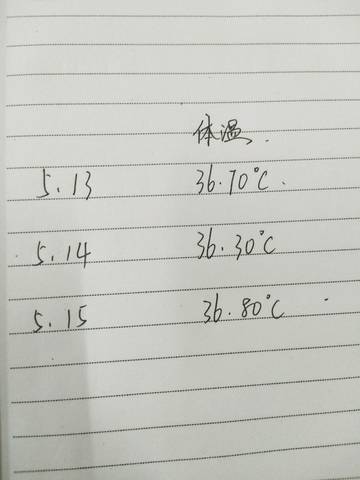 体温
5.13 36.70°C.
5.14 36.30°C
5.15 36.80°C